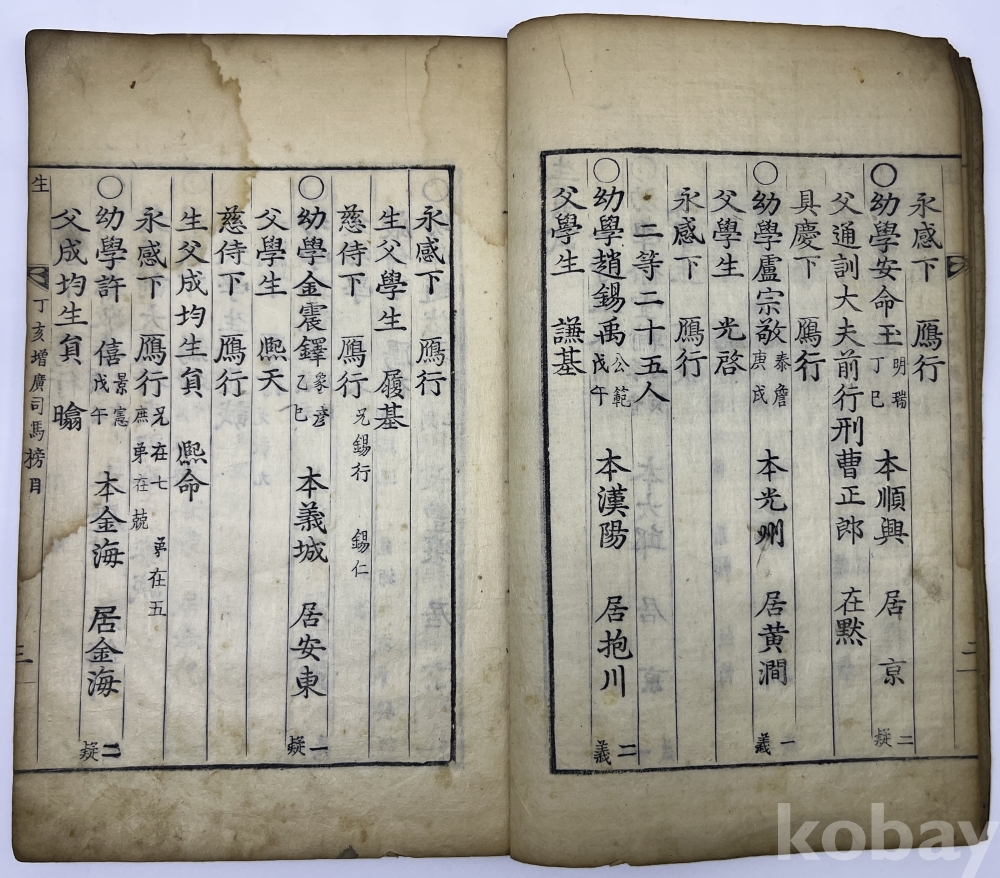 永感下 鴈行
〇幼學安命玉 明瑞 丁巳 本順興 居京 二疑
父通訓大夫前行刑曹正郎 在默
具慶下 鴈行
〇幼學盧宗敬 泰詹 庚戌 本光州 居黃澗 一義
父學生 光啓
永感下 鴈行
二等二十五人
〇幼學趙錫禹 公範 戊午 本漢陽 居抱川 二義
父學生 謙基
永感下 鴈行
生父學生 履基
慈侍下 鴈行 兄錫行 錫仁
〇幼學金震鐸 彥 乙巳 本義城 居安東 一疑
父學生 熙天
慈侍下 鴈行
生父成均生員 熙命
永感下 鴈行 兄在七 弟在五 庶弟在兢
〇幼學許僖 景憲 戊午 本金海 居金海 二疑
父成均生員 暡
生 丁亥增廣司馬榜目 三
kobay